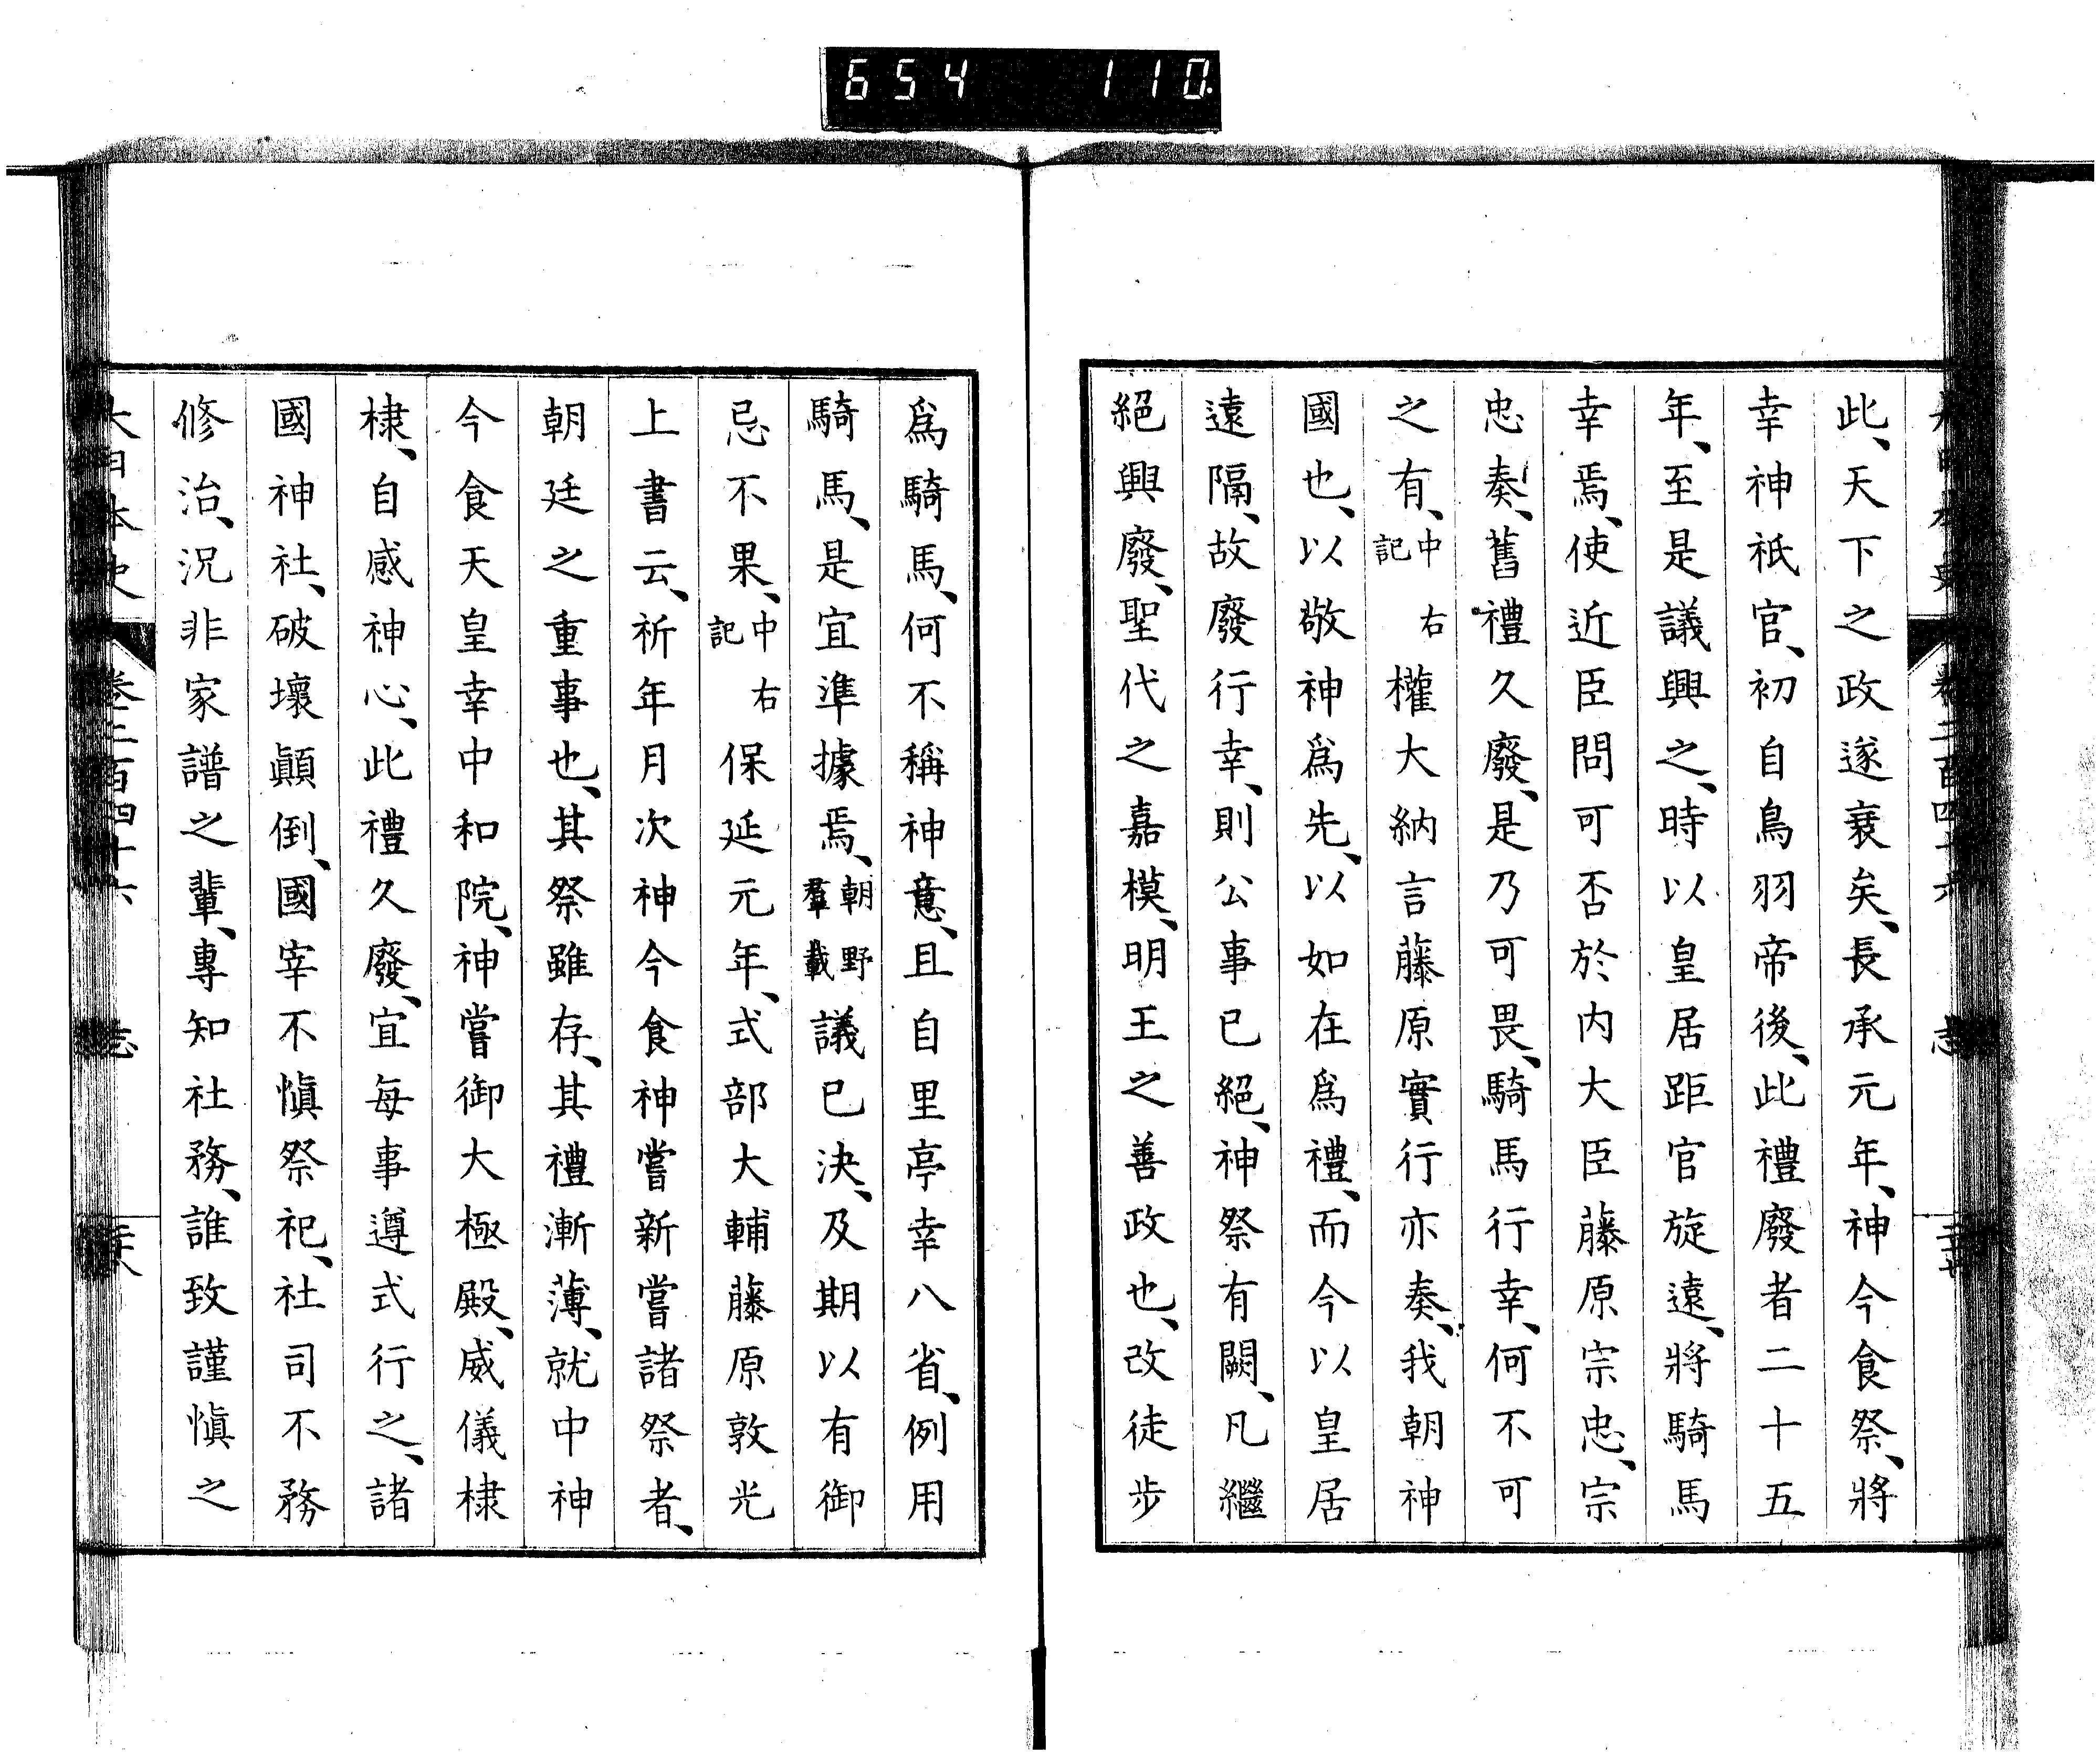 654 110
此、天下之政遂衰矣、長承元年、神今食祭、將
幸神祇官、初自鳥羽帝後、此禮廢者二十五
年、至是議興之、時以皇居距官旋遠、將騎馬
幸焉、使近臣問可否於内大臣藤原宗忠、宗
忠奏、舊禮久廢、是乃可畏、騎馬行幸、何不可
之有、中右記權大納言藤原實行亦奏、我朝神
國也、以敬神爲先、以如在爲禮、而今以皇居
遠隔、故廢行幸、則公事已絕、神祭有闕、凡繼
絕興廢、聖代之嘉模、明王之善政也、改徒步
爲騎馬、何不稱神意、且自里亭幸八省、例用
騎馬、是宜準據焉、朝野羣載議已決、及期以有御
忌不果、中右記保延元年、式部大輔藤原敦光
上書云、祈年月次神今食神嘗新嘗諸祭者、
朝廷之重事也、其祭雖存、其禮漸薄、就中神
今食天皇幸中和院、神嘗御大極殿、威儀棣
棣、自感神心、此禮久廢、宜每事遵式行之、諸
國神社、破壞顚倒、國宰不愼祭祀、社司不務
修治、況非家譜之輩、專知社務、誰致謹愼之
大日本史 卷二百四十六 志